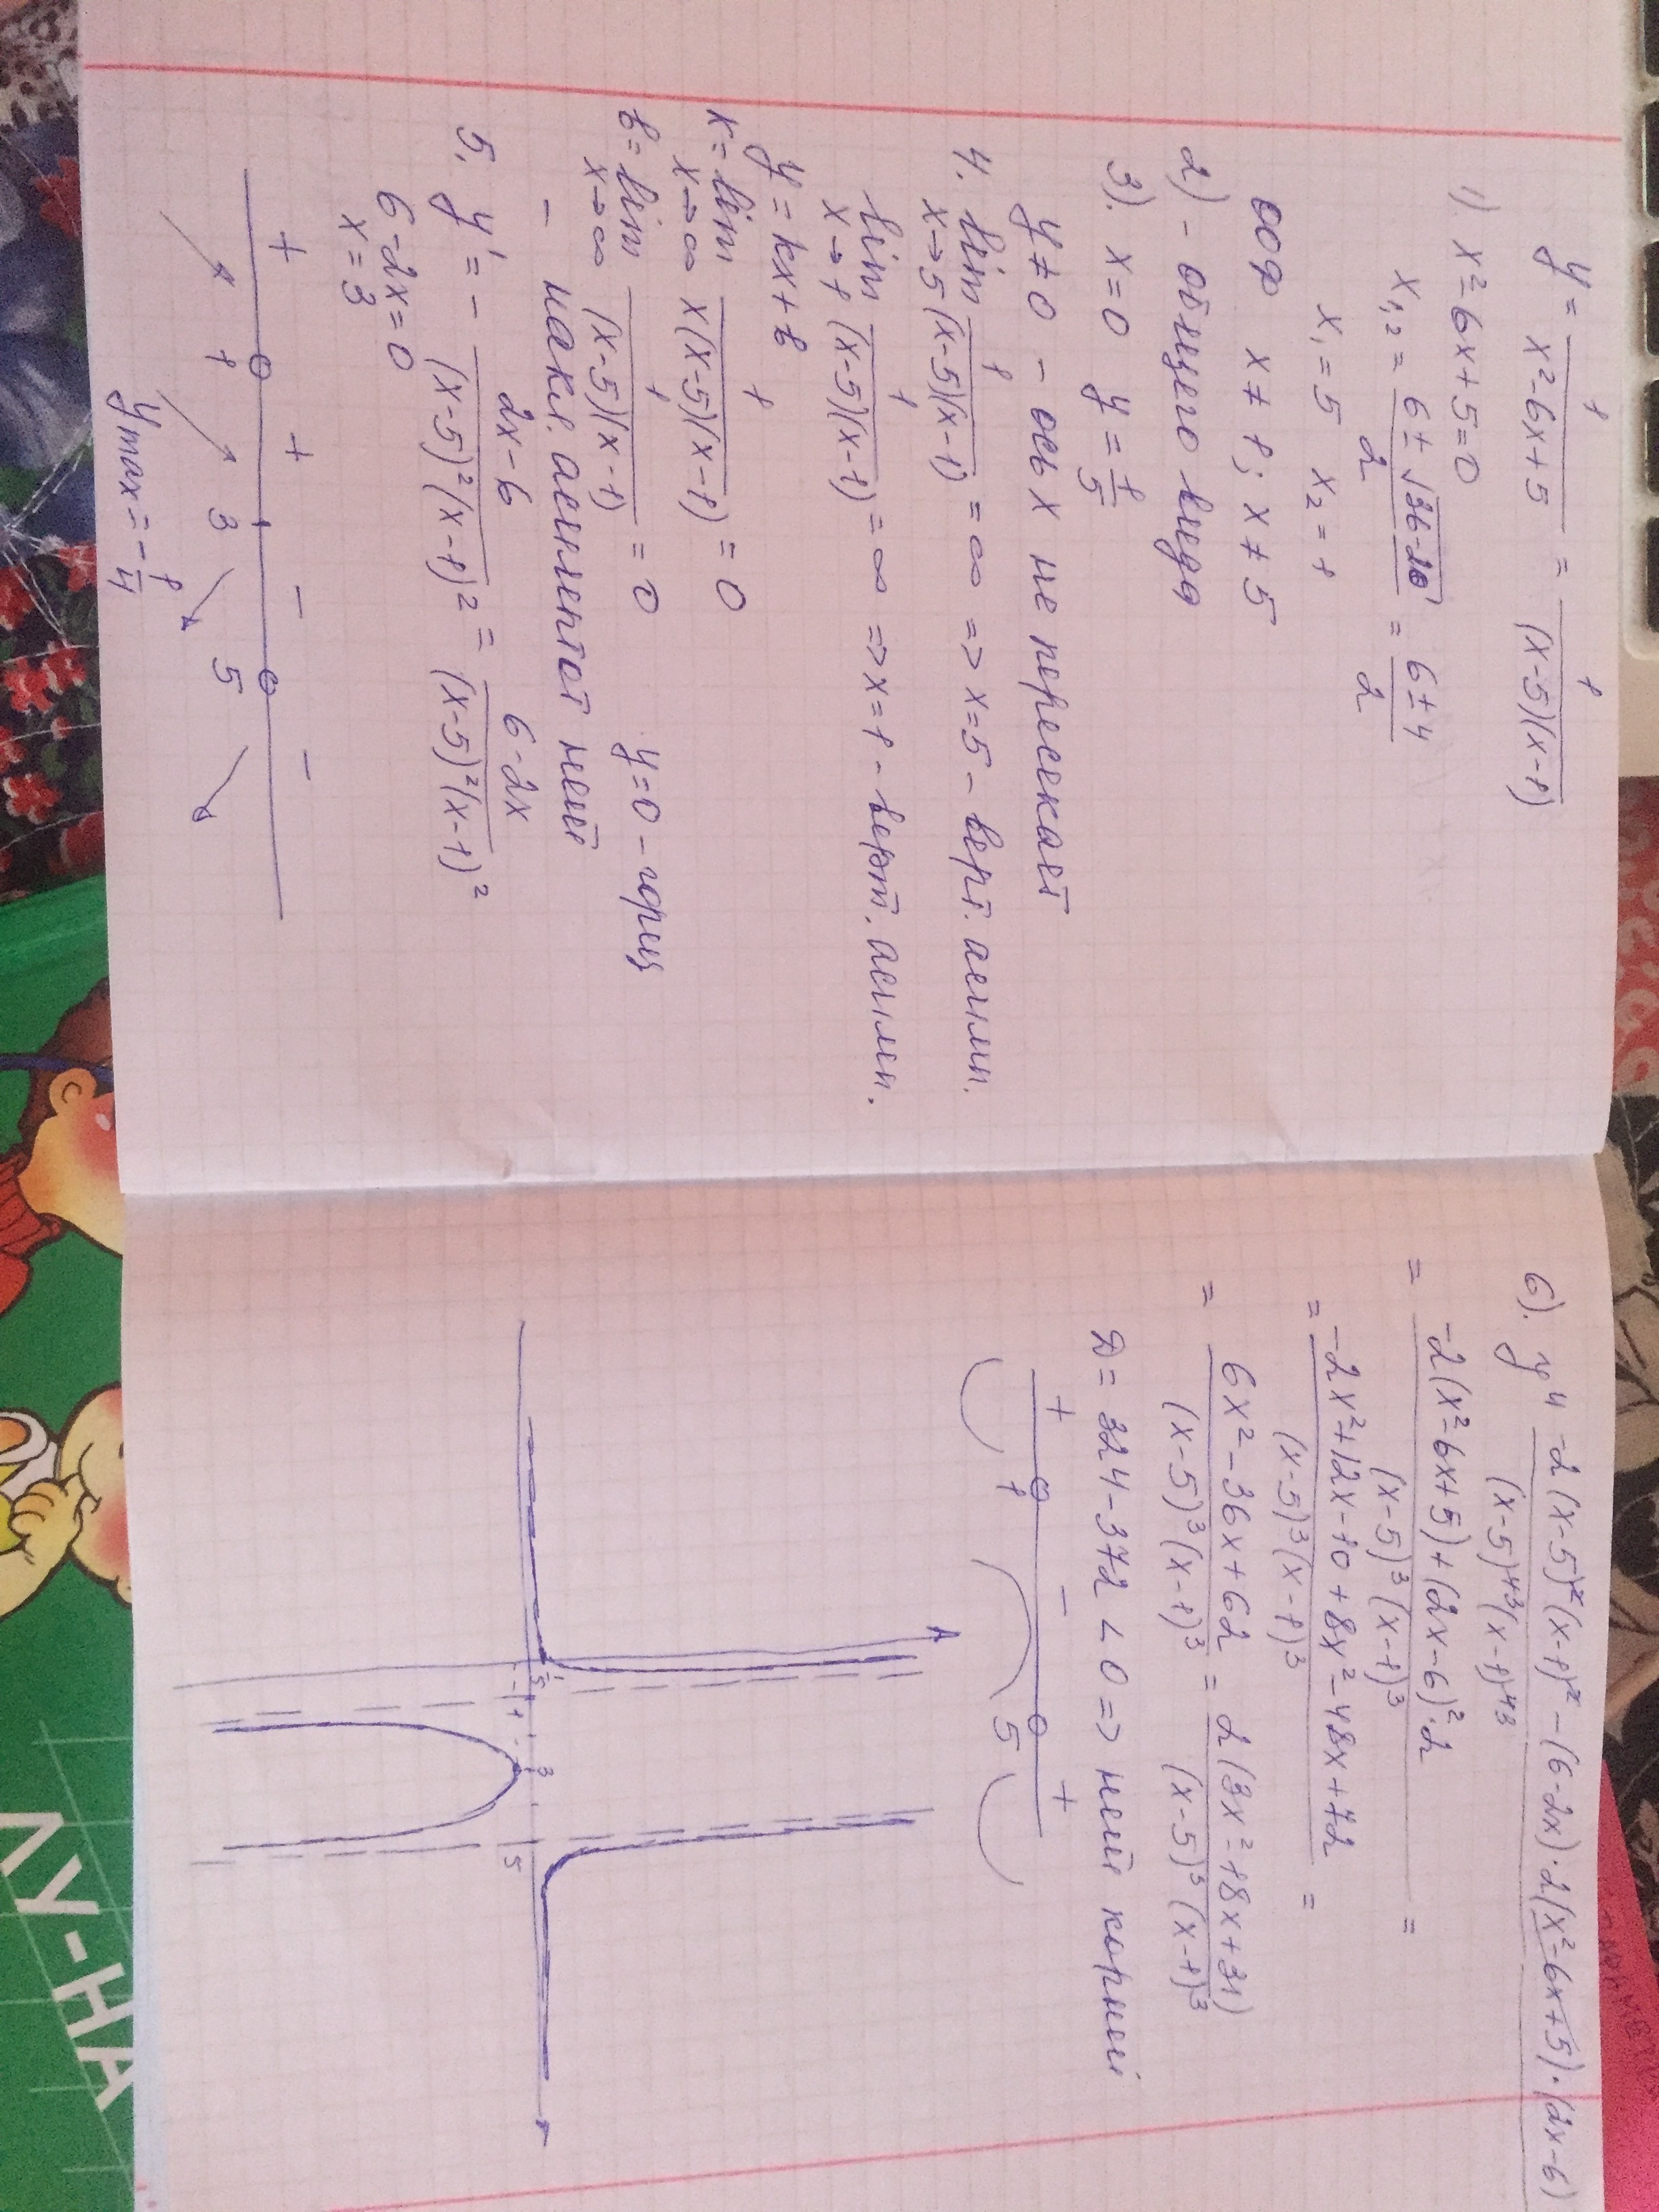 y = 1/(x²-6x+5) = 1/((x-5)(x-1))
1). x²-6x+5=0
x₁,₂ = (6±√(36-20))/2 = (6±4)/2
x₁=5 x₂=1
ООФ x≠1; x≠5
2) - общего вида
3). x=0 y=1/5
y≠0 - ось x не пересекает
4. lim x→5 1/((x-5)(x-1)) = ∞ => x=5 - верт. асимп.
lim x→1 1/((x-5)(x-1)) = ∞ => x=1 - верт. асимп.
y=kx+b
k=lim x→∞ 1/(x(x-5)(x-1)) = 0
b=lim x→∞ 1/((x-5)(x-1)) = 0 y=0 - гориз
- накл. асимптот нет
5. y' = - (2x-6)/((x-5)²(x-1)²) = (6-2x)/((x-5)²(x-1)²)
6-2x=0
x=3
+ + - -
1 3 5
ymax = -1/4
6). y'' = (-2(x-5)²(x-1)² - (6-2x)·2(x²-6x+5)·(2x-6))/((x-5)⁴³(x-1)⁴³)
= (-2(x²-6x+5)+(2x-6)²·2)/((x-5)³(x-1)³) =
= (-2x²+12x-10+8x²-48x+72)/((x-5)³(x-1)³) =
= (6x²-36x+62)/((x-5)³(x-1)³) = 2(3x²-18x+31)/((x-5)³(x-1)³)
D = 324-372 < 0 => нет корней
+ - +
1 5
1/5
1 3 5
ЛУ-НА